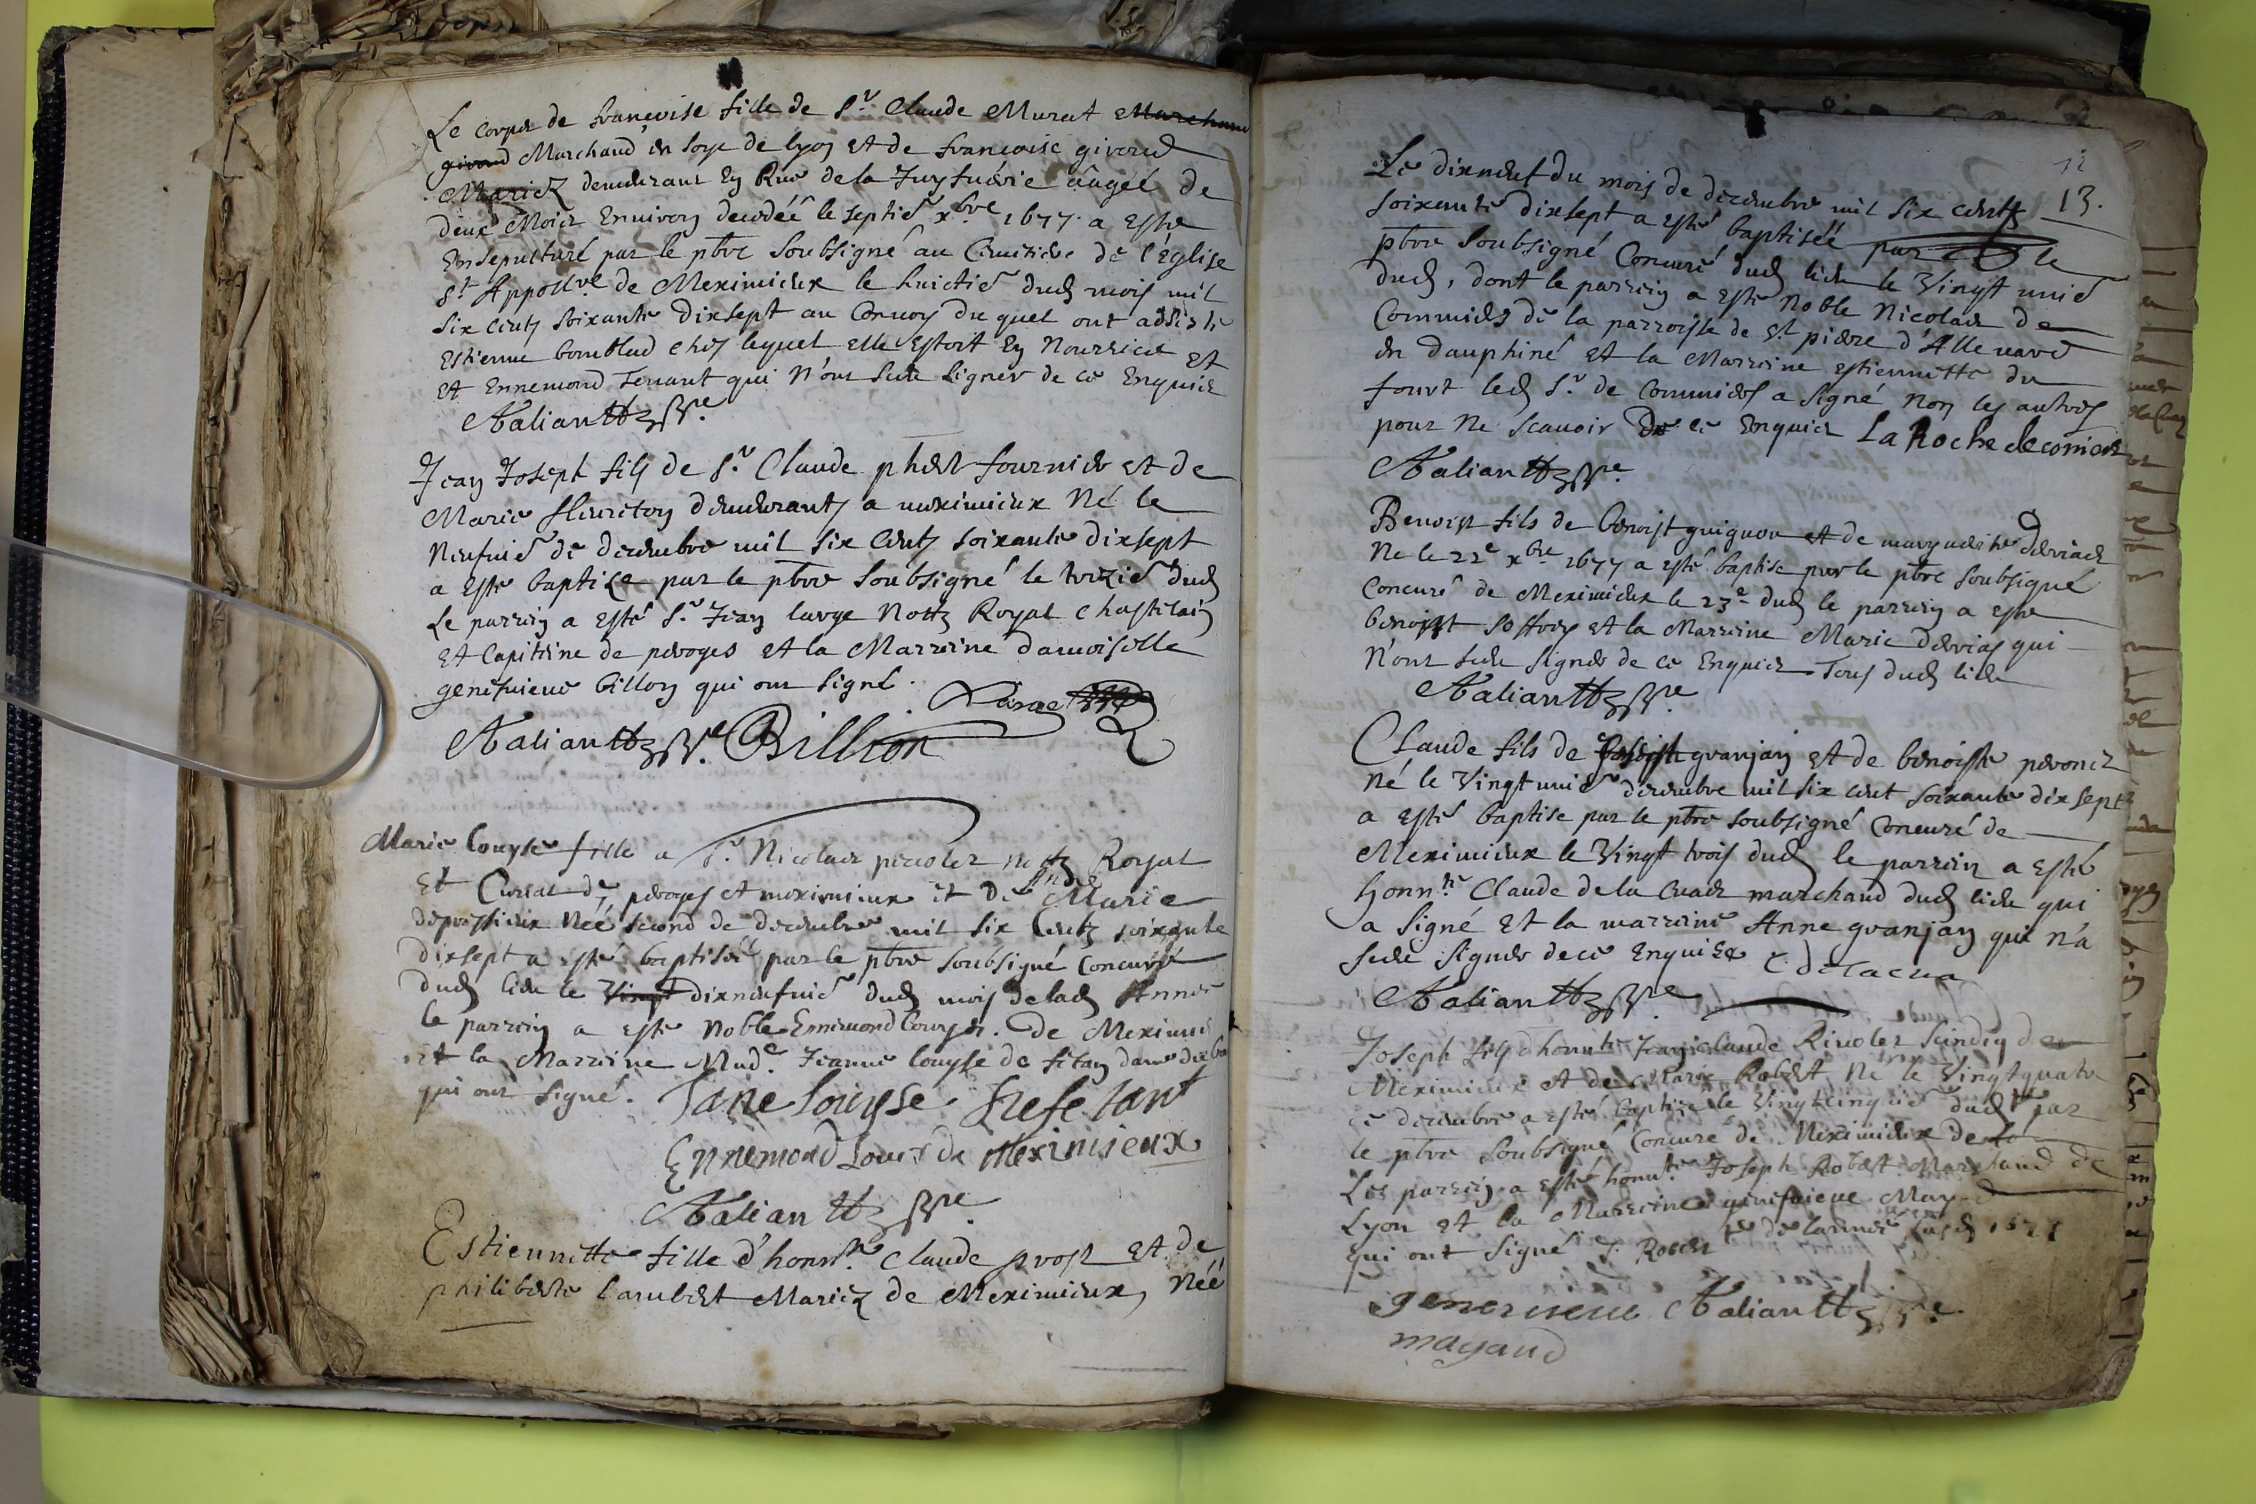 Le corps de francoise fille de Sr. Claude Murat Marchand
girard Marchand en soye de lyon et de francoise girard
Mariez demeurant en Rue de la Juyfuërie aagéé de
deux Mois Environ decedéé le septie xbre 1677. a esté
Ensepulturé par le pbre soubsigné au Cimitiere de l'églize
St Appollre de Meximieux le huictie dud mois mil
six cents soixante dixsept au Convoy du quel ont assisté
Estienne chez lequel elle estoit en Nourrice et
et Ennemond Tenant qui n'ont sceu signer de ce Enquis
Jean Joseph fils de Sr. Claude fournier et de
Marie fleureton demeurants a meximieux Né le
Neufuie de decembre mil six cents soixante dixsept
a esté baptize par le pbre soubsigné le trezie dud
Le parrein a esté Sr. Jean large Nottz Royal Chastelain
et Capitaine de peroges et la Marreine damoiselle
geneuieue billon qui ont signé.
Large
Billion
Marie louyse fille a Sr. Nicolas nottz Royal
et Curial de peroges et meximieux et de Marie
Née second de decembre mil six cents soixante
dixsept a esté baptiséé par le pbre soubsigné Concuré
dud lieu le Vingt dixneufuie dud mois delad Annee
le parrein a esté Noble Ennemond louys. de Meximie
et la Marreine Made. Jeanne louyse de
qui ont signé. Jane louysse
Ennemond Louis de Meximieux
Estiennette fille d'honnte. Claude prost et de
philiberte lambert Mariez de Meximieux, Néé
13.
Le dixneuf du mois de decembre mil six cents
soixante dixsept a esté baptiséé par le
pbre soubsigné Concuré dud lieu le Vingt unie
dud, dont le parrein a esté Noble Nicolas de
Commiers de la parroisse de St pierre d'Allevard
en dauphiné et la Marreine estiennette du
fourt led Sr. de Commiers a signé non les autres
pour ne scauoir de ce Enquis La Roche de comiers
Benoist fils de benoist guignon et de marguerite
Ne le 22e xbre 1677 a esté baptise par le pbre soubsigné
Concuré de Meximieux le 23e dud le parrein a esté
benoist et la Marreine Marie qui
n'ont sceu signer de ce Enquis Tous dud lieu
Claude fils de granjan et de benoiste peronet
né le Vingt unie decembre mil six cent soixante dix sept
a esté baptise par le pbre soubsigné Concuré de
Meximieux le Vingt trois dud le parrein a esté
honnte Claude de la Cuaz marchand dud lieu qui
a signé et la marreine Anne granjan qui n'a
sceu signer de ce Enquise C delacua
Joseph fils d'honnte Jean claude Scindiq de
Meximieux et de Marie Robert Né le Vingtquatre
de decembre a esté baptize le Vingtcinquie dud par
le pbre soubsigné Concuré de Meximieux
Le parrein a esté honnte Joseph Robert Marchand de
Lyon et la Marreine geneuieue
qui ont signé J. Robert 1677
geneuieue
mayaud